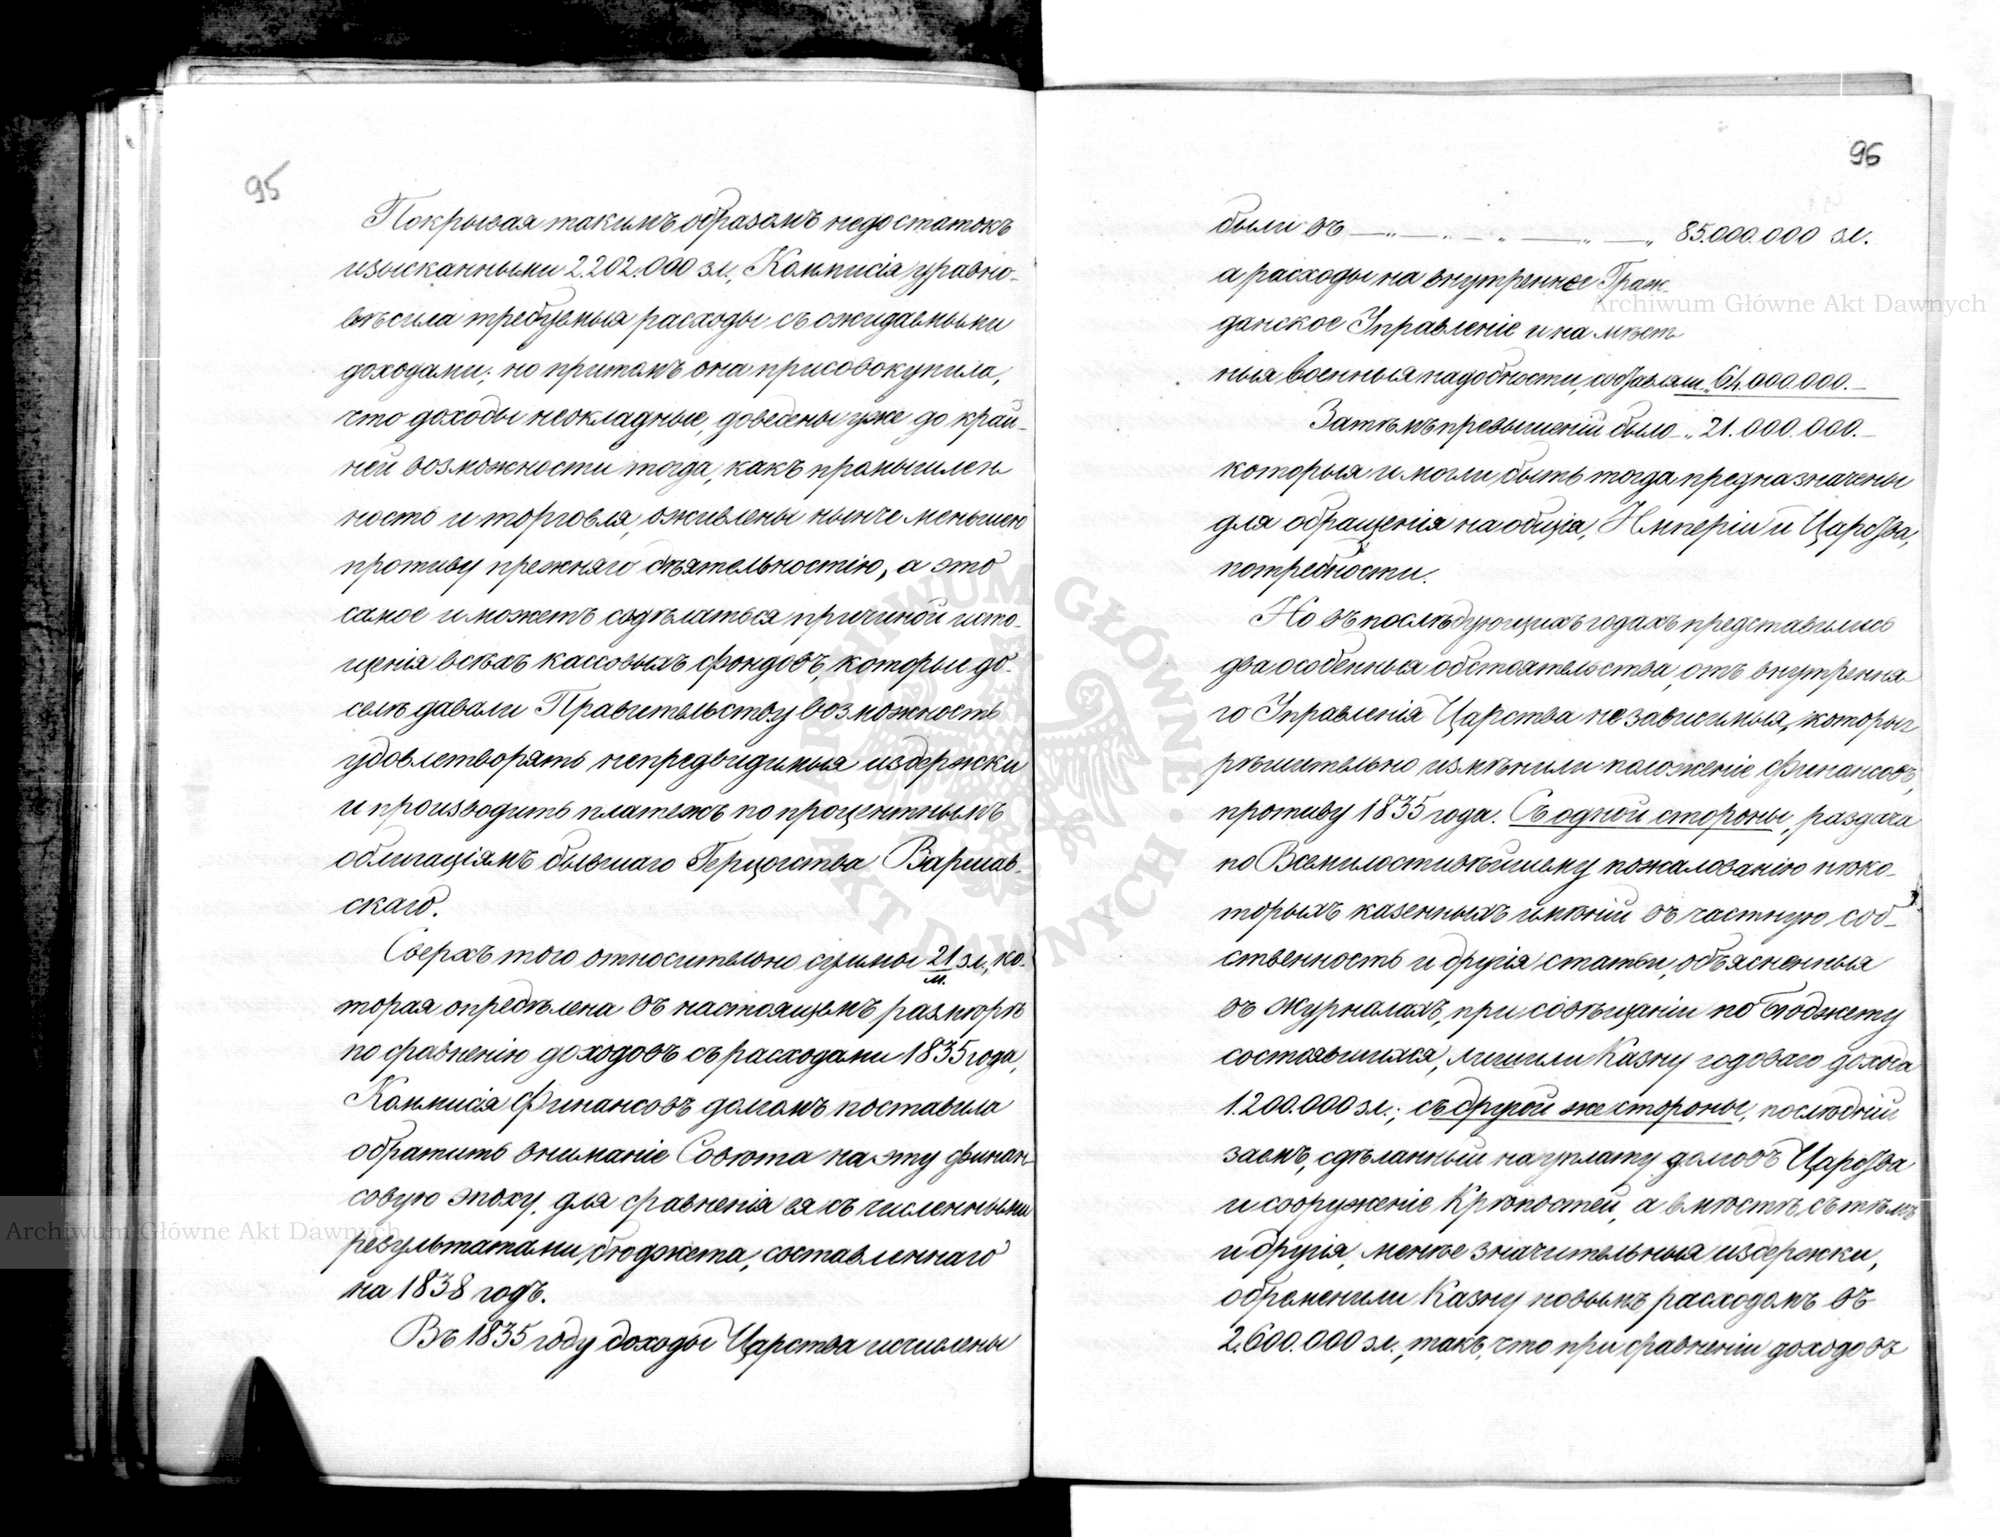 95
Покрывая такимъ образомъ недостатокъ
изысканными 2.202.000 зл., Коммисія уравно-
вѣсила требуемыя расходы съ ожидаемыми
доходами; но притомъ она присовокупила,
что доходы неокладные, доведены уже до край-
ней возможности тогда, какъ промышлен
ность и торговля, оживлены нынче меньшею
противу прежняго дѣятельностію, а это
самое и можетъ содѣлаться причиной исто-
щенія всѣхъ кассовыхъ фондовъ, которые до-
селѣ давали Правительству возможность
удовлетворять непредвидимыя издержки
и производить платежъ по процентнымъ
облигаціямъ бывшаго Герцогства Варшав-
скаго.
Сверхъ того относительно суммы 21 м. зл., ко-
торая опредѣлена въ настоящемъ размѣрѣ
по сравненію доходовъ съ расходами 1835 года,
Коммисія Финансовъ долгомъ поставила
обратить вниманіе Совѣта на эту финан-
совую эпоху, для сравненія ея съ численными
результатами, бюджета, составленнаго
на 1838 годъ.
Въ 1835 году доходы Царства исчислены
96
были въ —„— . — „ — „ — „ 85.000.000 зл.
а расходы на внутреннее Граж-
данское Управленіе и на мѣст
ныя военныя надобности, собявляли „ 64.000.000.—
Затѣмъ превышеніи было „ 21.000.000.—
которыя и могли быть тогда предназначены
для обращенія на общія, Имперіи и Царства,
потребности.
Но въ послѣдующихъ годахъ представились
два особенныя обстоятельства, отъ внутрення
го Управленія Царства независимыя, которыя
рѣшительно измѣнили положеніе Финансовъ,
противу 1835 года. Съ одной стороны, раздача
по Всемилостивѣйшему пожалованію нѣко-
торыхъ казенныхъ имѣній въ частную соб-
ственность и другія статьи, объясненныя
въ журналахъ, при совѣщаніи по бюджету
состоявшихся, лишили Казну годоваго дохода
1.200.000 зл.; съ другой же стороны, послѣдній
заемъ, сдѣланный на уплату долговъ Царства
и сооруженіе Крѣпостей, а вмѣстѣ съ тѣмъ
и другія, менѣе значительныя издержки,
обременили Казну новымъ расходомъ въ
2.600.000 зл., такъ, что при сравненіи доходовъ
Archiwum Główne Akt Dawnych
Archiwum Główne Akt Dawnych
ARCHIWUM GŁÓWNE AKT DAWNYCH